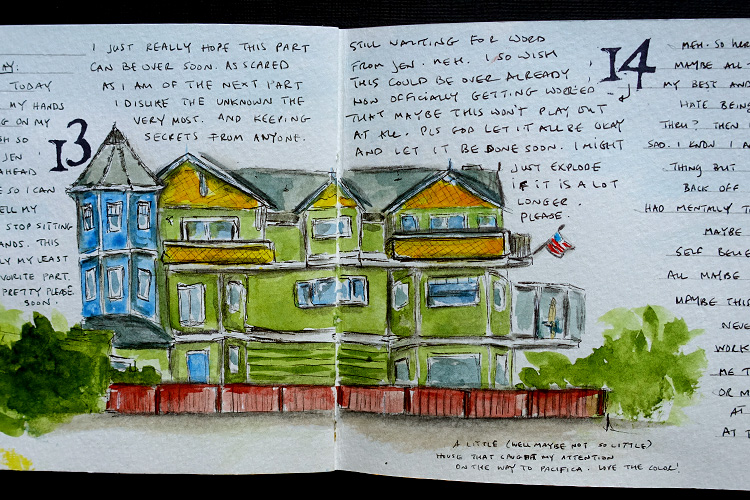 AY:
TODAY
MY HANDS
G ON MY
H SO
JEN
AHEAD
E SO I CAN
ELL MY
STOP SITTING
ANDS. THIS
LY MY LEAST
AVORITE PART.
PRETTY PLEASE.
SOON.
13
I JUST REALLY HOPE THIS PART
CAN BE OVER SOON. AS SCARED
AS I AM OF THE NEXT PART
I DISLIKE THE UNKNOWN THE
VERY MOST. AND KEEPING
SECRETS FROM ANYONE.
STILL WAITING FOR WORD
FROM JEN. MEH. I SO WISH
THIS COULD BE OVER ALREADY
NOW OFFICIALLY GETTING WORRIED
THAT MAYBE THIS WON'T PLAY OUT
AT ALL. PLS GOD LET IT ALL BE OKAY
AND LET IT BE DONE SOON. I MIGHT
JUST EXPLODE
IF IT IS A LOT
LONGER.
PLEASE.
A LITTLE (WELL MAYBE NOT SO LITTLE)
HOUSE THAT CAUGHT MY ATTENTION
ON THE WAY TO PACIFICA. LOVE THE COLOR!
14
MEH. SO HER
MAYBE ALL
MY BEST AND
HATE BEING
THRU? THEN
SAD. I KNOW I A
THING BUT
BACK OFF
HAD MENTALLY T
MAYBE
SELF BELIE
ALL MAYBE
MAYBE THIS
NEVE
WORK
ME T
OR M
AT
AT T